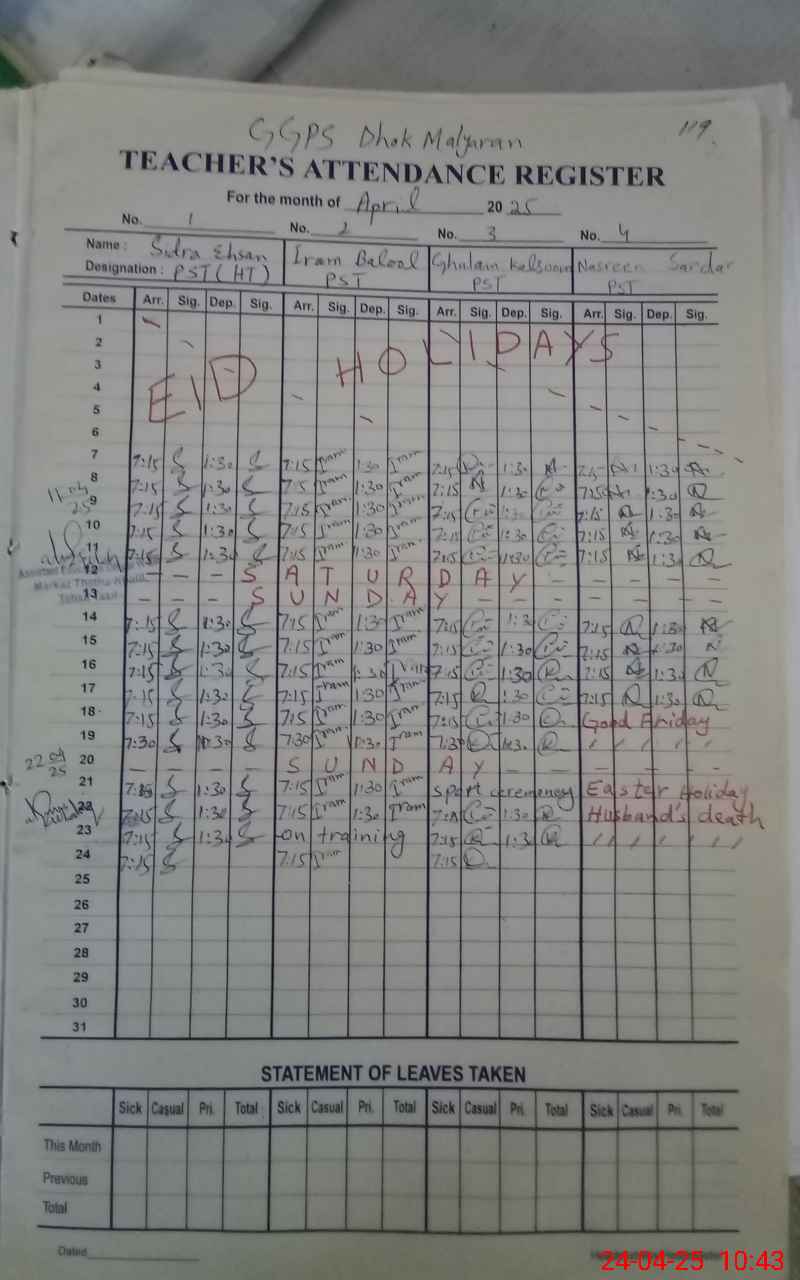 GGPS Dhok Malyaran
119
TEACHER'S ATTENDANCE REGISTER
For the month of April 2025
No. 1 No. 2 No. 3 No. 4
Name : Sidra Ehsan Iram Batool Ghulam Kalsoom Nasreen Sardar
Designation : PST (HT) PST PST PST
Dates Arr. Sig. Dep. Sig. Arr. Sig. Dep. Sig. Arr. Sig. Dep. Sig. Arr. Sig. Dep. Sig.
1
2
3
EID HOLIDAYS
4
5
6
7 7:15 1:30 7:15 Iram 1:30 Iram 7:15 1:30 1:30
8 7:15 1:30 7:15 Iram 1:30 Iram 7:15 1:30 1:30
11.04
25
9 7:15 1:30 7:15 Iram 1:30 Iram 7:15 1:30 7:15 1:30
10 7:15 1:30 7:15 Iram 1:30 Iram 7:15 1:30 7:15 1:30
11 7:15 1:30 7:15 Iram 1:30 Iram 7:15 1:30 7:15 1:30
12 — — — SATURDAY — — — — —
13 — — — SUNDAY — — — — — — —
14 7:15 1:30 7:15 Iram 1:30 Iram 7:15 1:30 7:15 1:30
15 7:15 1:30 7:15 Iram 1:30 Iram 7:15 1:30 7:15 1:30
16 7:15 1:30 7:15 Iram 1:30 Iram 7:15 1:30 7:15 1:30
17 7:15 1:30 7:15 Iram 1:30 Iram 7:15 1:30 7:15 1:30
18 7:15 1:30 7:15 Iram 1:30 Iram 7:15 1:30 Good Friday
19 7:30 7:30 Iram Iram 7:30 " " " " "
22 04
25
20 — — — — SUNDAY — — — — —
21 7:15 1:30 7:15 Iram 1:30 Iram sport ceremoney Easter Holiday
22 7:15 1:30 7:15 Iram 1:30 Iram 7:15 1:30 Husband's death
23 7:15 1:30 on training 7:15 1:30 " " " " "
24 7:15 7:15 Iram 7:15
25
26
27
28
29
30
31
STATEMENT OF LEAVES TAKEN
Sick Casual Pri. Total Sick Casual Pri. Total Sick Casual Pri. Total Sick Casual Pri. Total
This Month
Previous
Total
Dated
24-04-25 10:43